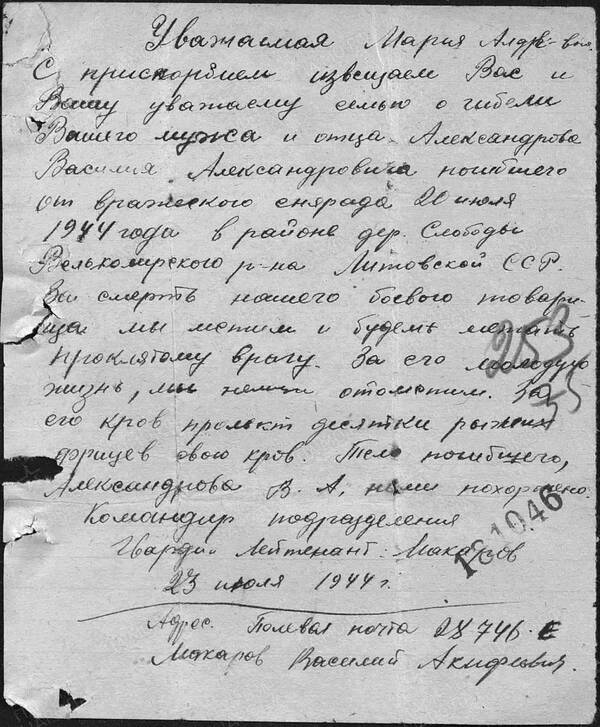 Уважаемая Мария
С прискорбием извещаем Вас и
Вашу уважаему семью о гибели
Вашего мужа и отца Александрова
Василия Александровича погибшего
от вражеского снаряда 20 июля
1944 года в районе дер. Слободы
Велькомирского р-на Литовской ССР.
За смерть нашего боевого товари-
ща мы мстим и будемь мстить
проклятому врагу. За его молодую
жизнь, мы отомстим. За
его кров прольют десятки рыжих
фрицев свою кров. Тело погибшего,
Александрова В. А, нами похоронено.
Командир подразделения
Гвардии Лейтенант: Макаров
23 июля 1944 г.
Адрес. Полевая почта 28746-Е
Макаров Василий
253
18 10 46